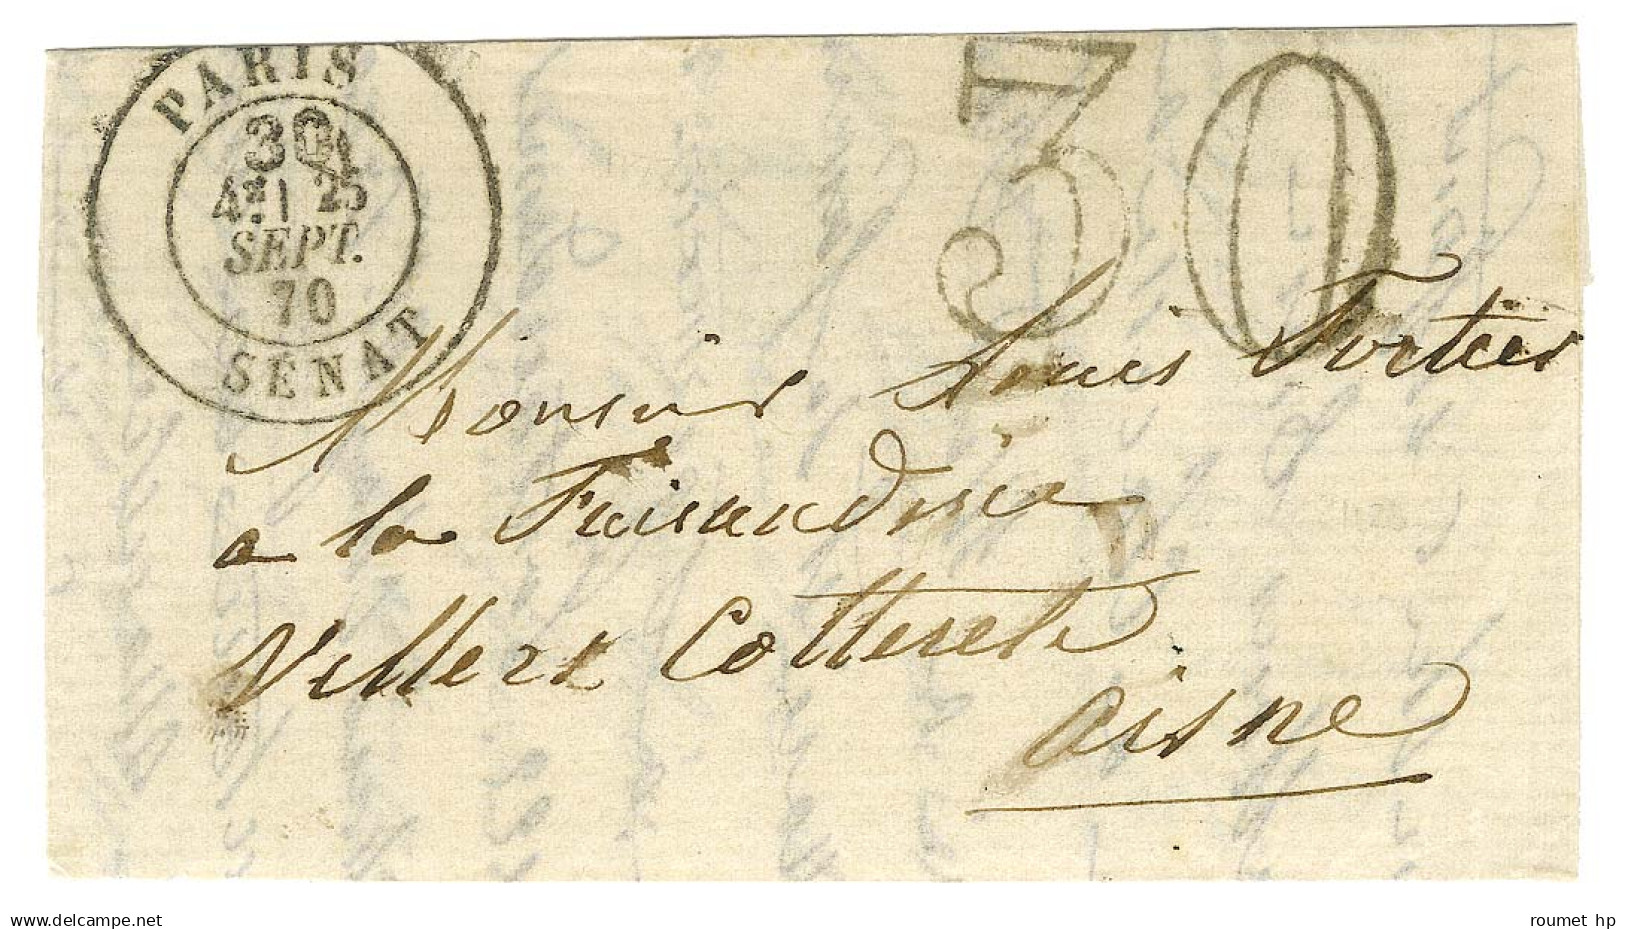 PARIS
30
4E/ 25
SEPT.
70
SÉNAT
Monsieur Louis Fortier
a la Faisanderie
Villers Cotterets
aisne
www.delcampe.net
roumet_hp